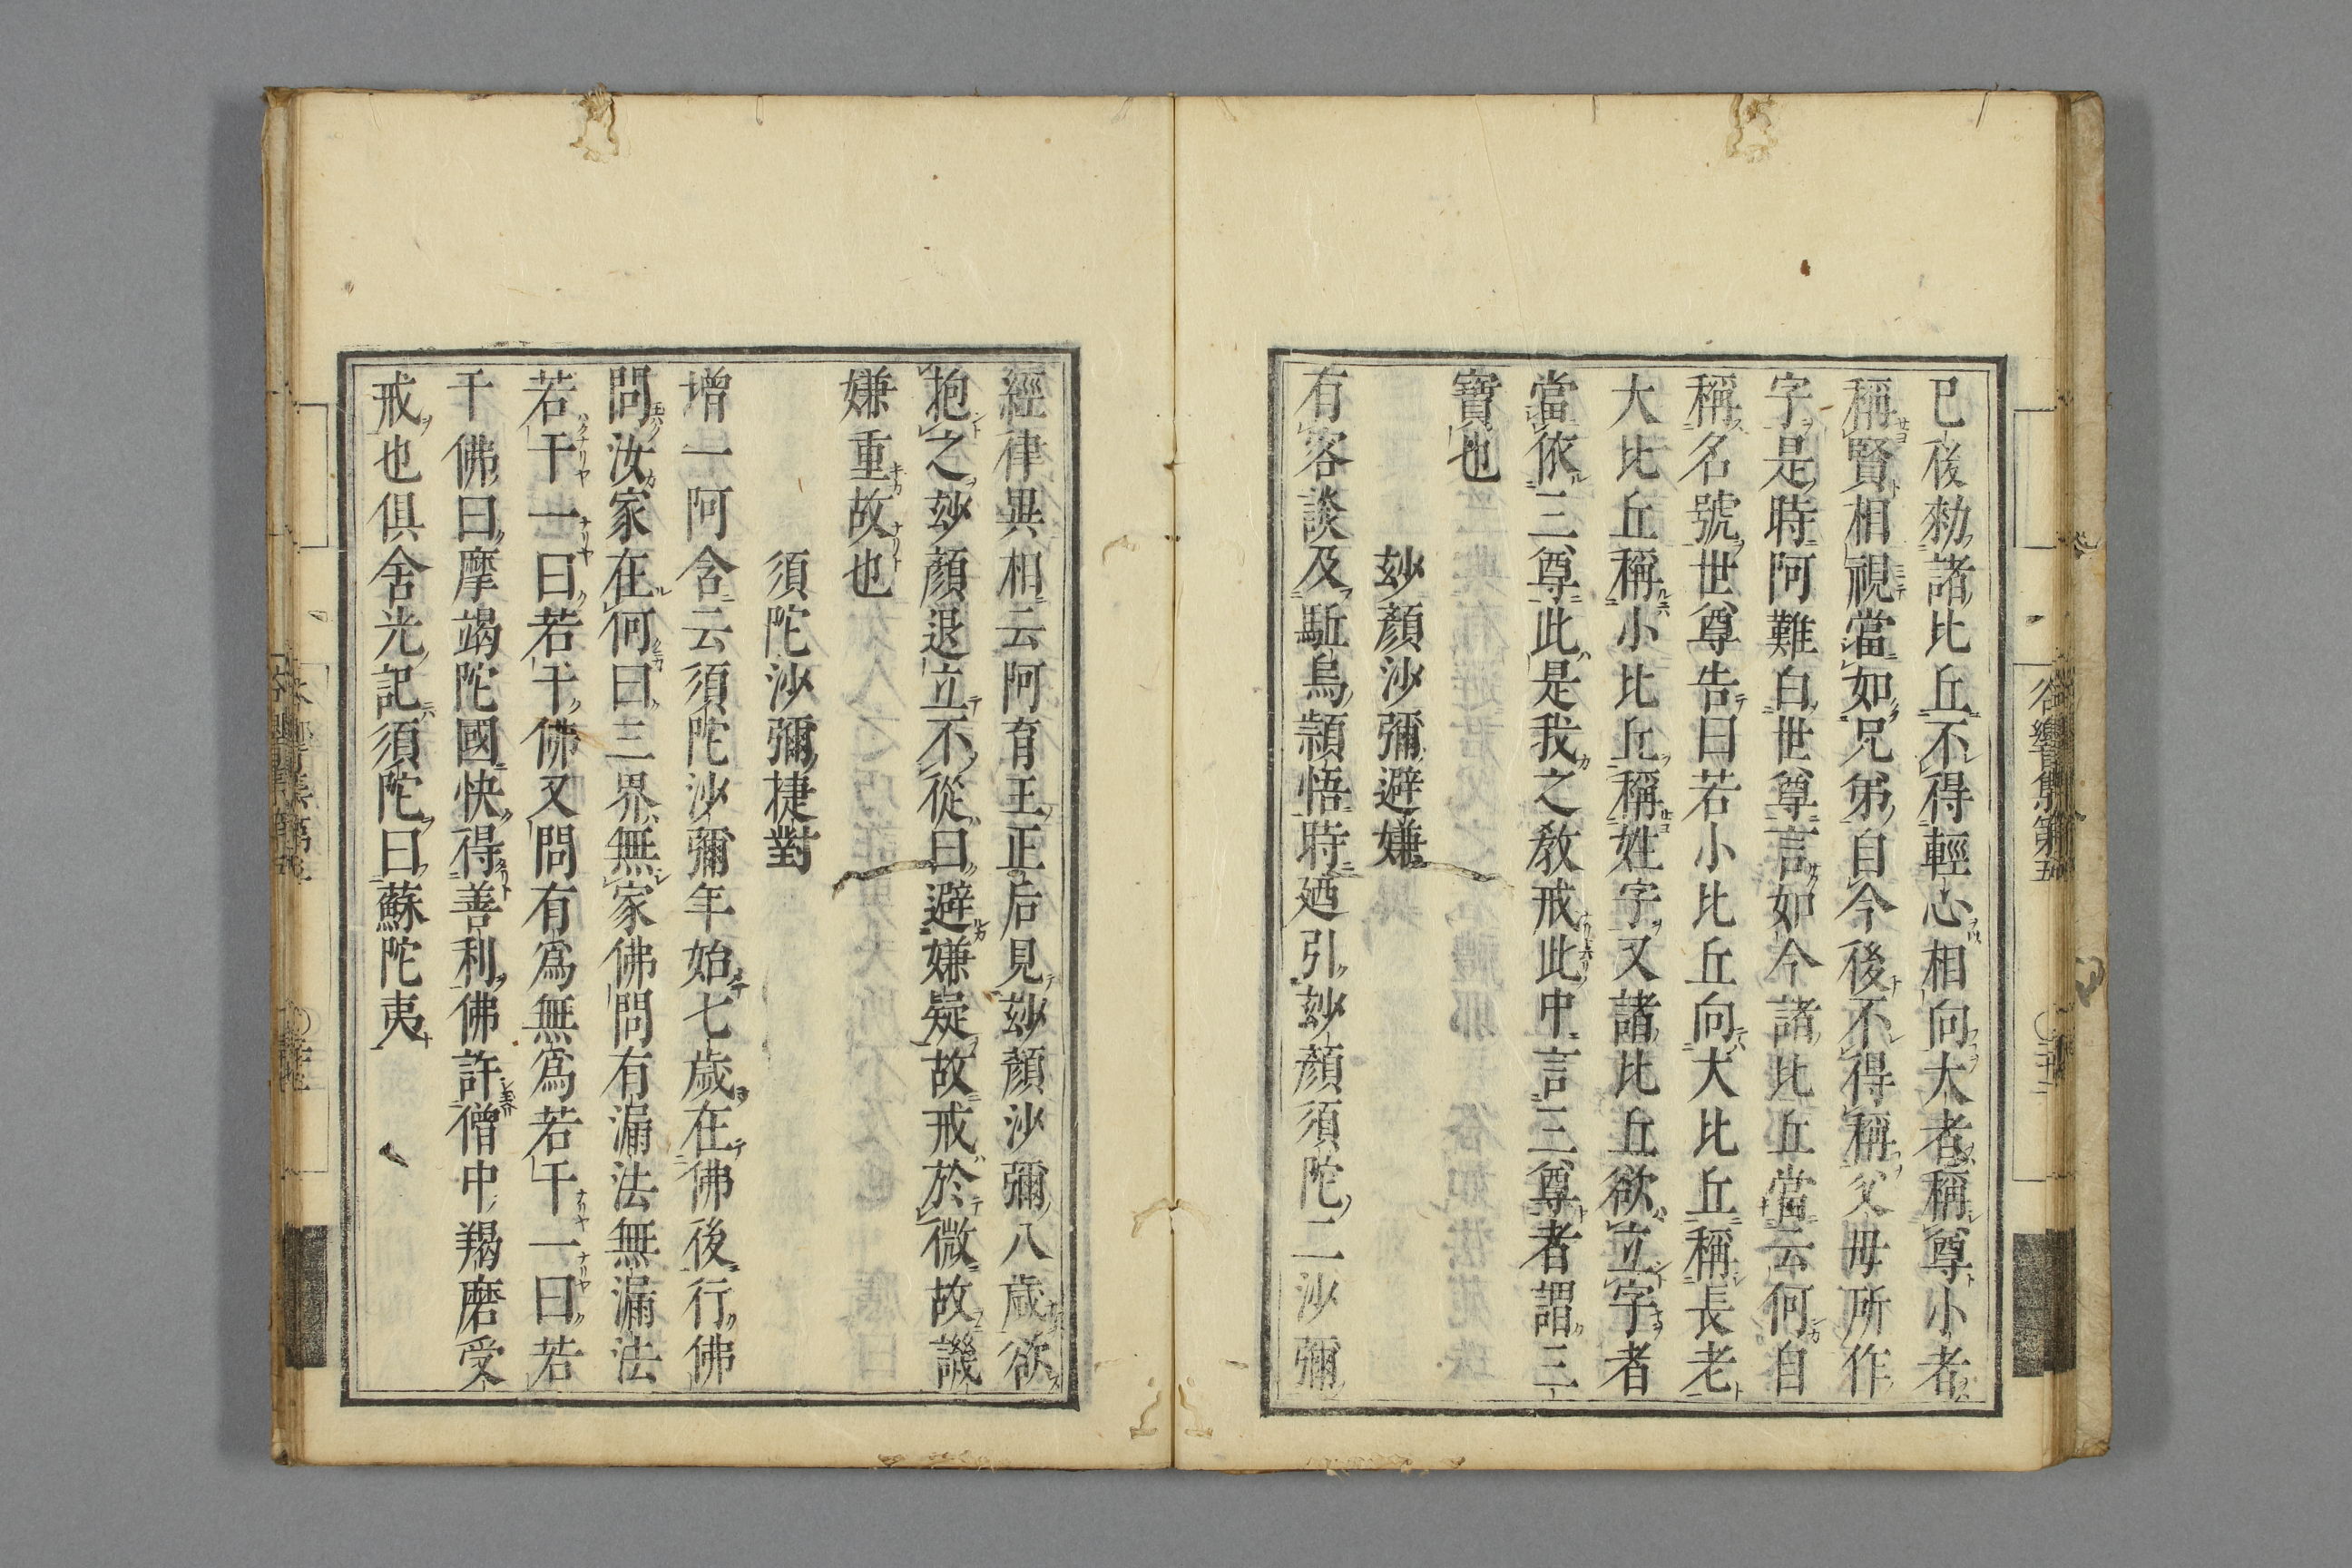 已後勑諸比丘不得輕心相向大者稱尊小者
稱賢相視當如兄弟自今後不得稱父母所作
字是時阿難白世尊言如今諸比丘當云何自
稱名號世尊告曰若小比丘向大比丘稱長老
大比丘稱小比丘稱姓字又諸比丘欲立字者
當依三尊此是我之教戒此中言三尊者謂三
寶也
玅顏沙彌避嫌
有客談及駈烏頴悟時廼引玅顏須陀二沙彌
經律異相云阿育王正后見玅顏沙彌八歲欲
抱之玅顏退立不從曰避嫌疑故戒於微故譏
嫌重故也
須陀沙彌捷對
增一阿含云須陀沙彌年始七歲在佛後行佛
問汝家在何曰三界無家佛問有漏法無漏法
若干一曰若干佛又問有爲無爲若干一曰若
干佛曰摩竭陀國快得善利佛許僧中羯磨受
戒也俱舍光記須陀曰蘇陀夷
谷響集第五